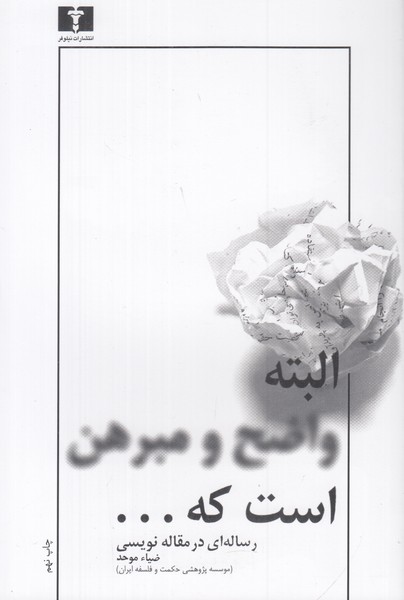 انتشارات نیلوفر
البته
واضح و مبرهن
است که ...
رساله‌ای در مقاله نویسی
ضیاء موحد
(موسسه پژوهشی حکمت و فلسفه ایران)
چاپ نهم